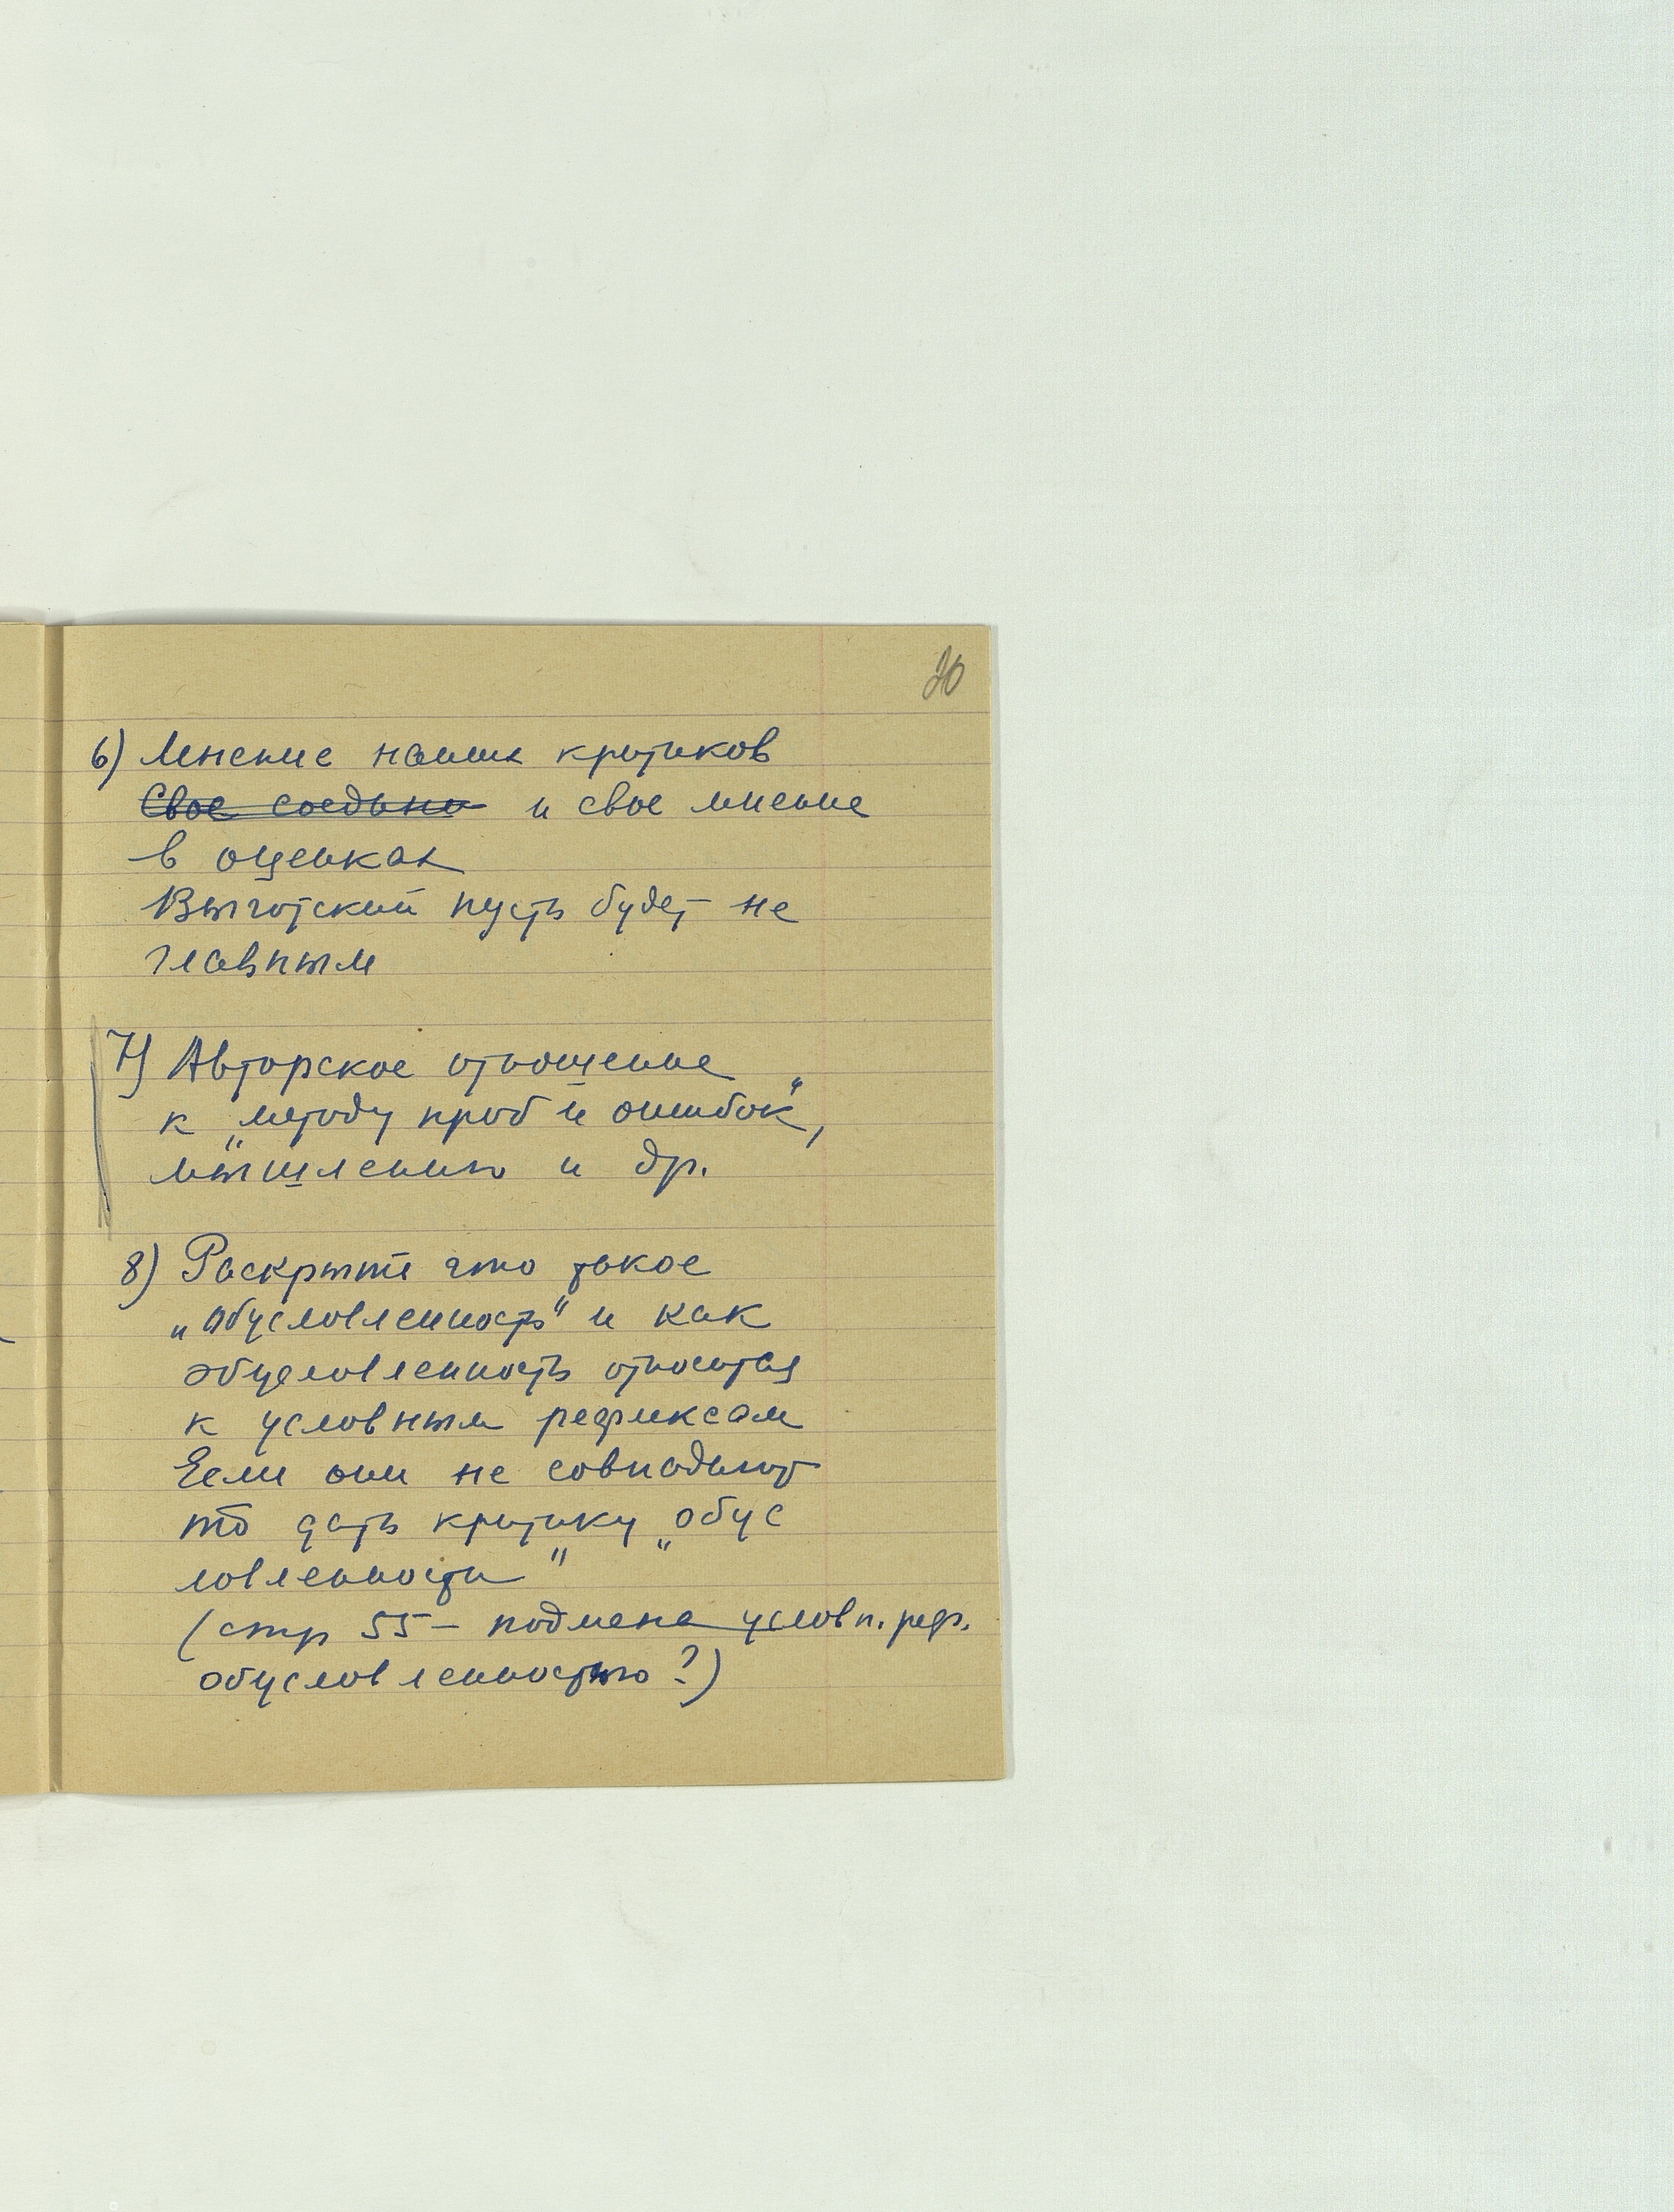 20
6) Мнение наших критиков
Свое соедине и свое мнение
в оценках
Выготский пусть будет не
главным
7) Авторское отношение
к „методу проб и ошибок",
мышлению и др.
8) Раскрыть что такое
„обусловленность" и как
обусловленность относится
к условным рефлексам
Если они не совпадают
то дать критику „обус
ловленности"
(стр 55 – подмена условн. реф.
обусловленностью?)